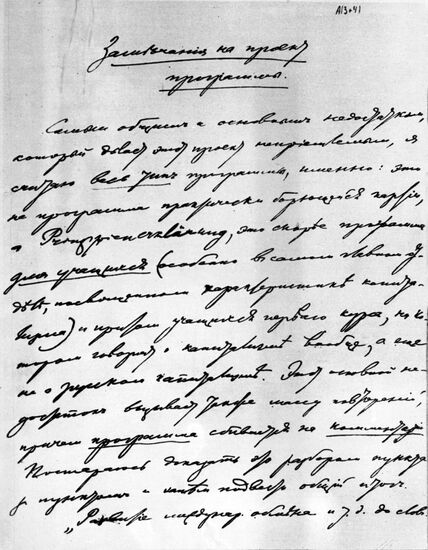 А13941
Замѣчанія на проект
программы.
Самым общим и основным недостатком,
который дѣлает этот проект непріемлемым, я
считаю весь тип программы, именно: это
не программа практически борющейся партіи,
а Prinzipienerklärung, это скорѣе программа
для учащихся (особенно в самом главном от-
дѣлѣ, посвященном характеристикѣ капита-
лизма) и притом учащихся первого курса, на ко-
тором говорят о капитализмѣ вообще, а еще
не о русском капитализмѣ. Этот основной не-
достаток вызывает также массу повтореній,
причем программа сбивается на комментарій.
Постараюсь доказать это разбором пункта
за пунктом и затѣм подведу общій итог.
„Развитіе междунар. обмѣна и т. д. до слов